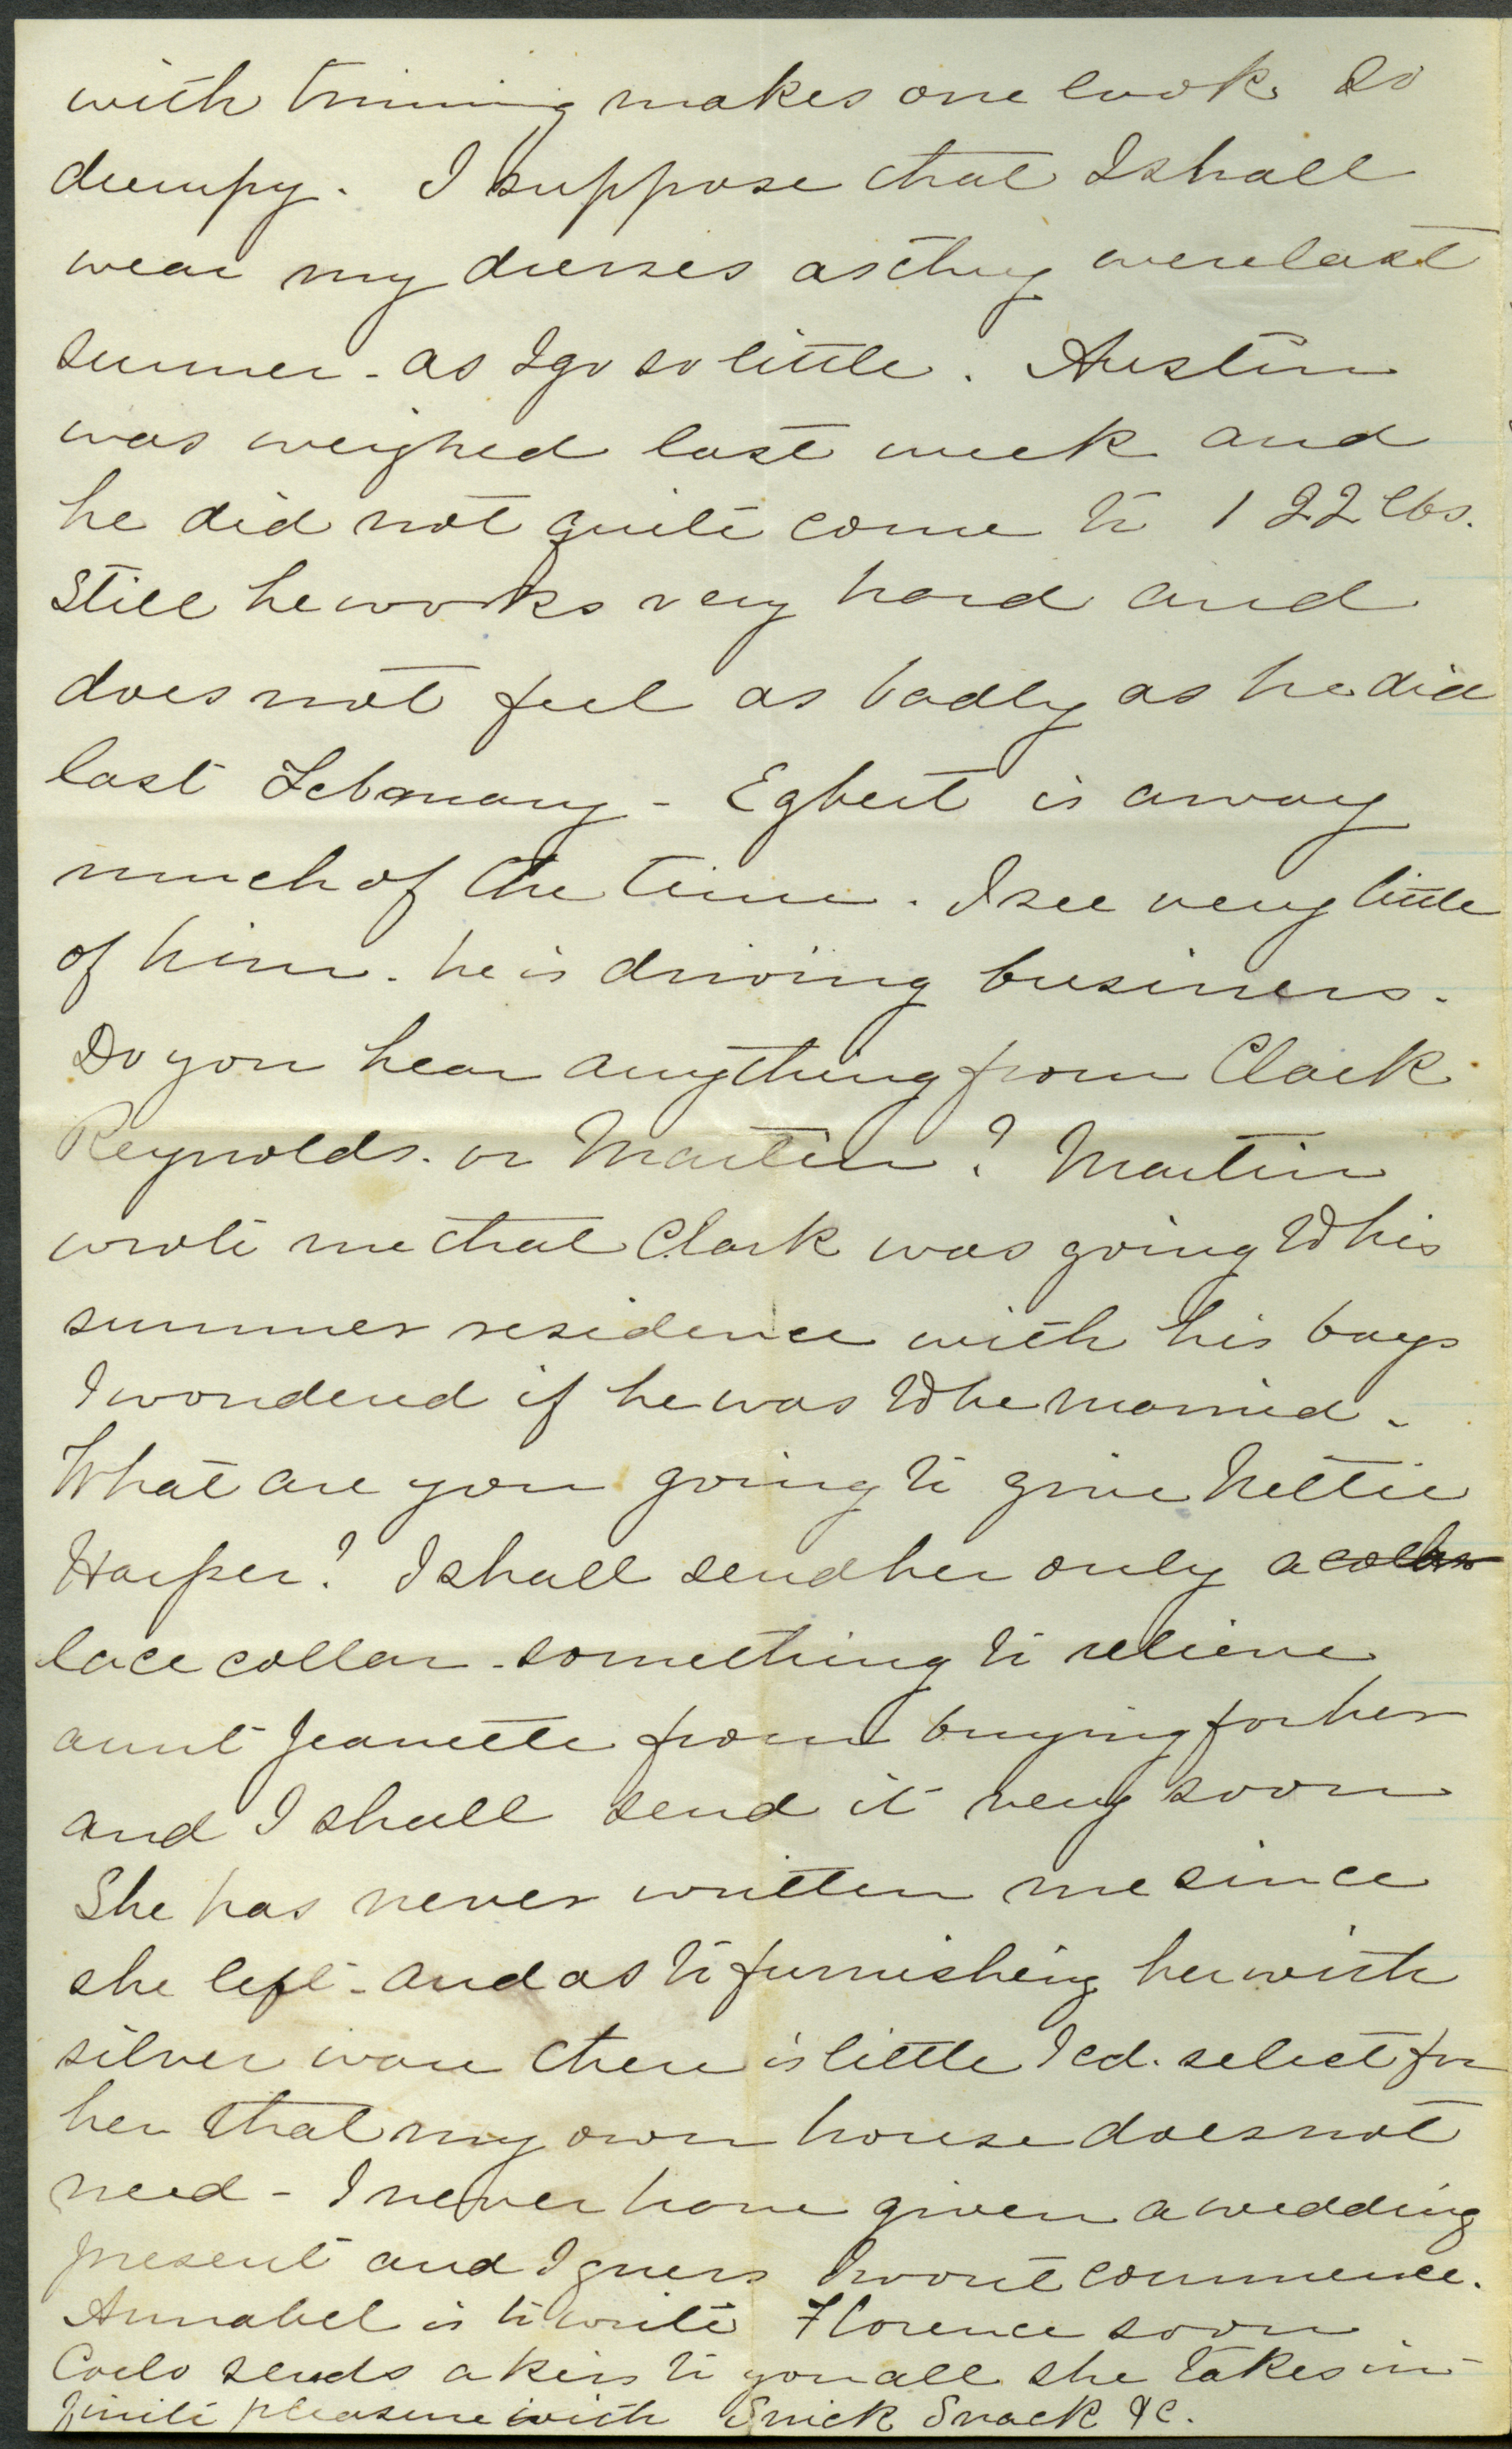 with trimming makes one look so
dumpy. I suppose that I shall
wear my dresses as they were last
summer - as I go so little. Austin
was weighed last week and
he did not quite come to 122 lbs.
Still he works very hard and
does not feel as badly as he did
last February - Egbert is away
much of the time. I see very little
of him. he is driving business.
Do you hear anything from Clark
Reynolds. or Martin? Martin
wrote me that Clark was going to his
summer residence with his boys
I wondered if he was to be married.
What are you going to give Nettie
Harper? I shall send her only a collar
lace collar - something to relieve
aunt Jeanette from buying for her
and I shall send it very soon
She has never written me since
she left - and as to furnishing her with
silver ware there is little I cd. select for
her that my own house does not
need - I never have given a wedding
present and I guess I wont commence.
Annabel is to write Florence soon
sends a kiss to you all she takes in-
finite pleasure with Snick Snack &c.